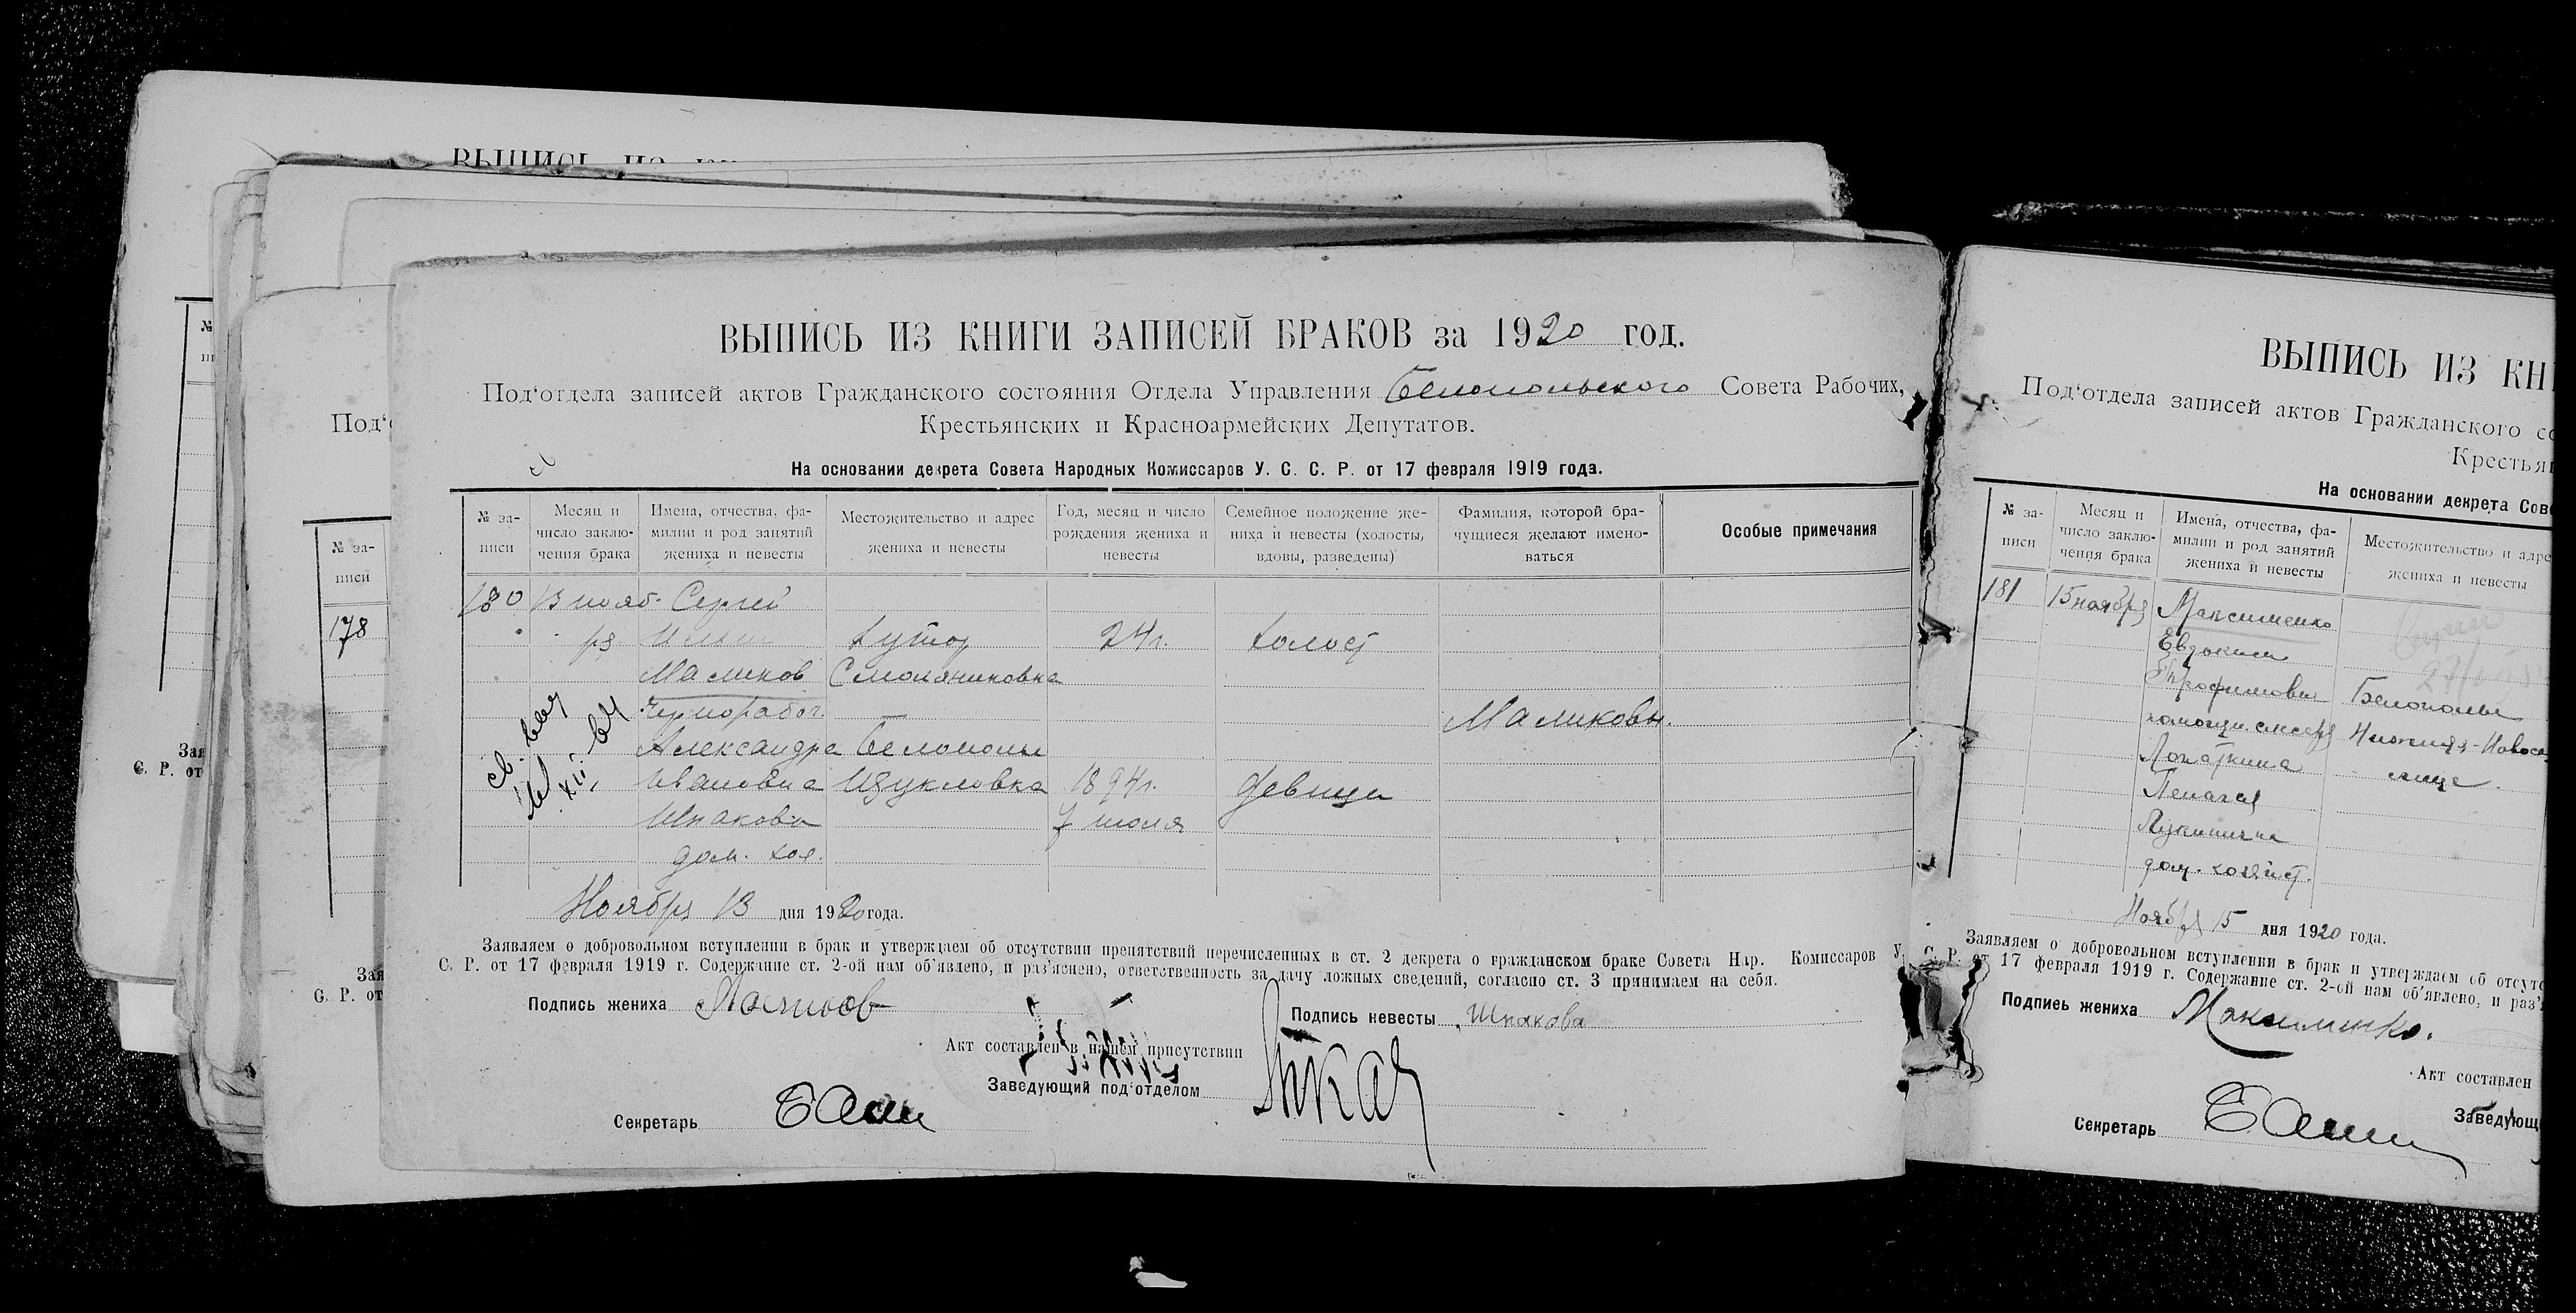 ВЫПИСЬ ИЗ
ВЫПИСЬ ИЗ КНИГИ ЗАПИСЕЙ БРАКОВ за 1920 год.
Под'отдела записей актов Гражданского состояния Отдела Управления Белопольского Совета Рабочих,
Крестьянских и Красноармейских Депутатов.
На основании декрета Совета Народных Комиссаров У. С. С. Р. от 17 февраля 1919 года.
№ за-писи | Месяц и число заклю-чения брака | Имена, отчества, фа-милии и род занятий жениха и невесты | Местожительство и адрес жениха и невесты | Год, месяц и число рождения жениха и невесты | Семейное положение же-ниха и невесты (холосты, вдовы, разведены) | Фамилия, которой бра-чущиеся желают имено-ваться | Особые примечания
180 13 нояб- Сергей
ря Ильич хутор 24 г. холост
Маликов Смолянниковка
чернорабоч. Маликовы.
Александра Белополье
Ивановна 1894г. девица
Шпакова 7 июля
дом. хоз.
Ноября 13 дня 1920 года.
Заявляем о добровольном вступлении в брак и утверждаем об отсутствии препятствий перечисленных в ст. 2 декрета о гражданском браке Совета Нар. Комиссаров У.
С. Р. от 17 февраля 1919 г. Содержание ст. 2-ой нам об'явлено, и раз'яснено, ответственность за дачу ложных сведений, согласно ст. 3 принимаем на себя.
Подпись жениха Маликов Подпись невесты Шпакова
Акт составлен в нашем присутствии
Заведующий под'отделом
Секретарь
Под'
№ за-
писи
178
Зая
С. Р. от
Зая
С. Р. от
ВЫПИСЬ ИЗ КН
Под'отдела записей актов Гражданского со
Крестьян
На основании декрета Сов
№ за-писи | Месяц и число заклю-чения брака | Имена, отчества, фа-милии и род занятий жениха и невесты | Местожительство и адре жениха и невесты
181 15 ноября Максименко
Евдоким
Трофимович Белополье
Нижняя-Новосе
Лопаткина лище
Пелагея
Лукинична
дом. хозяйст.
Ноября 15 дня 1920 года.
Заявляем о добровольном вступлении в брак и утверждаем об отсутс
С. Р. от 17 февраля 1919 г. Содержание ст. 2-ой нам об'явлено, и раз'
Подпись жениха Максименко.
Акт составлен
Заведующ
Секретарь